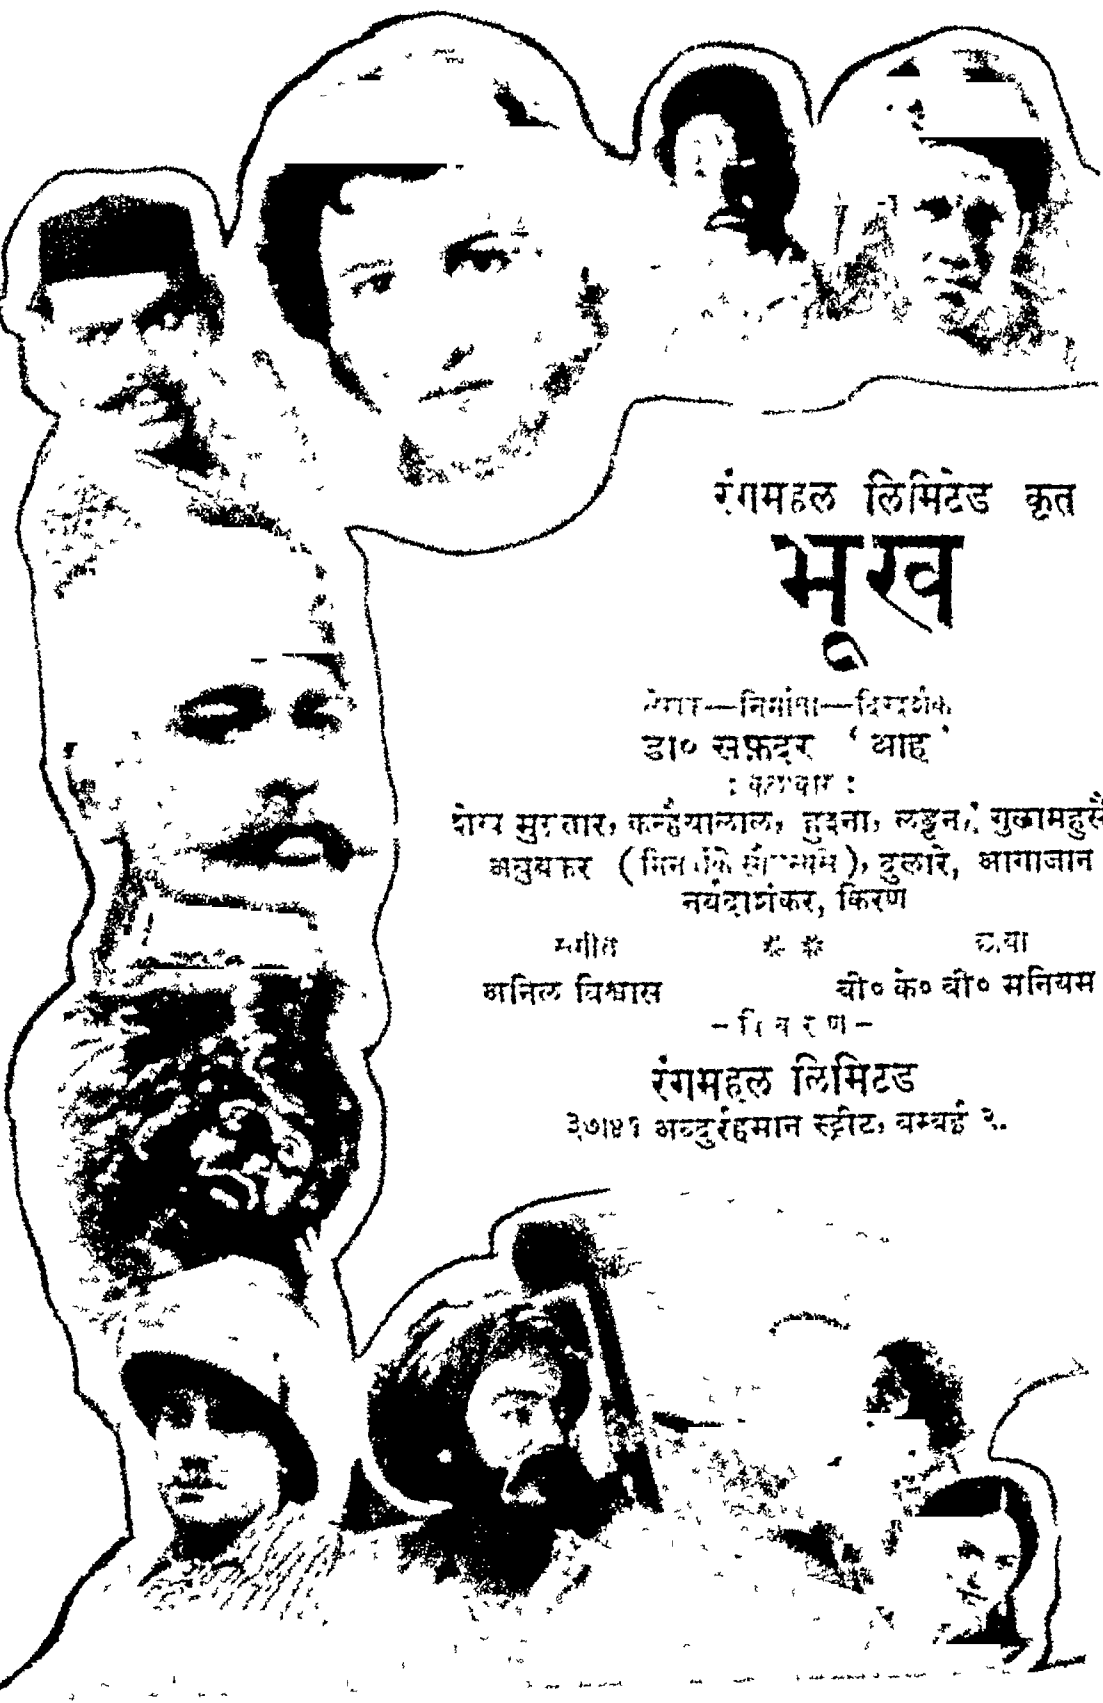 रंगमहल लिमिटेड कृत
भूख
निर्माता—दिग्दर्शक
डा० सफ़दर 'आह'
: कलाकार :
शेख मुख्तार, कन्हैयालाल, हुस्ना, लड्डन,
दुलारे, आगाजान
नर्यदाशंकर, किरण
संगीत छाया
अनिल विश्वास के० बी० मनियम
रंगमहल लिमिटड
अब्दुर्रहमान स्ट्रीट, बम्बई २.